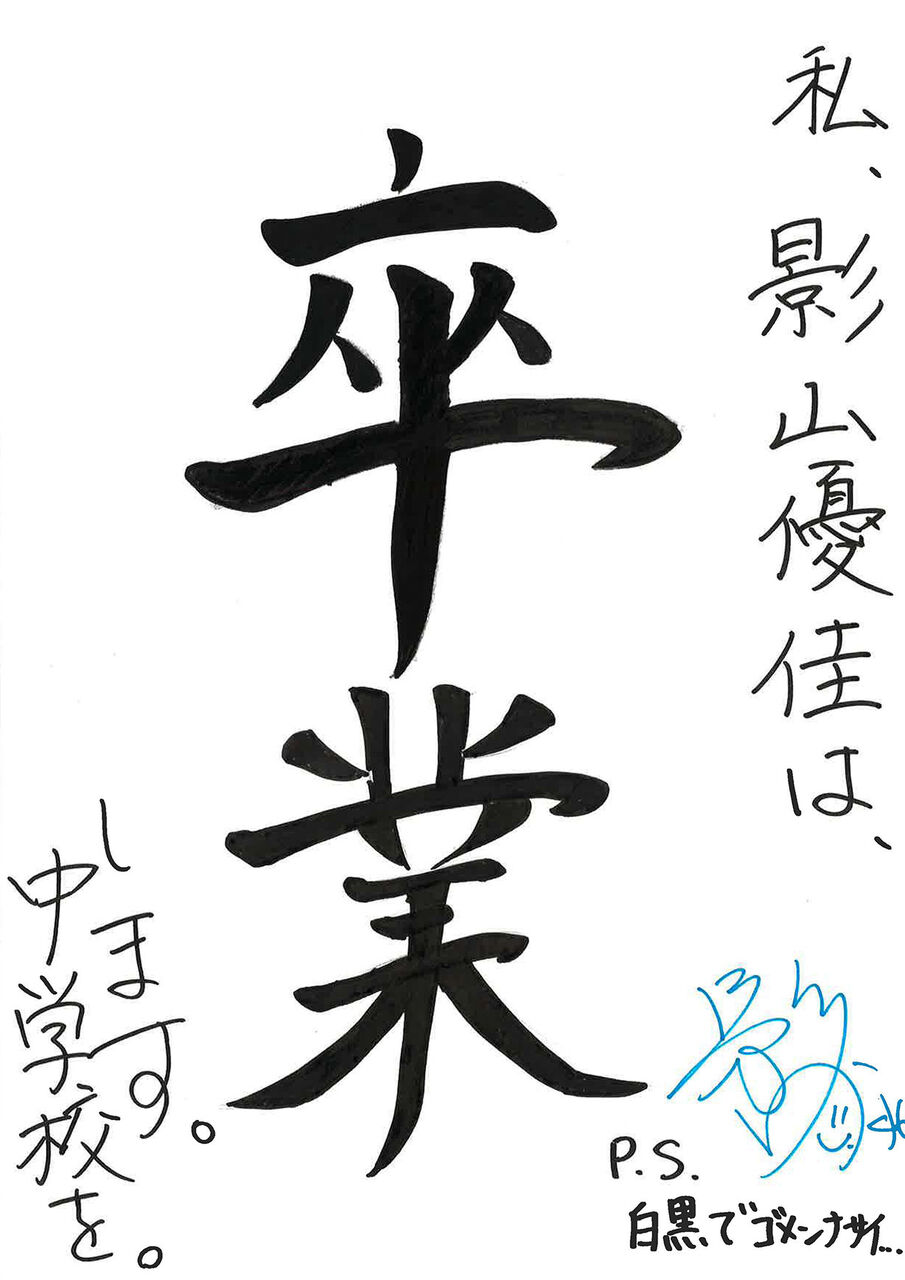 私、影山優佳は、
卒業
します。
中学校を。
P.S.
白黒でゴメンナサイ...